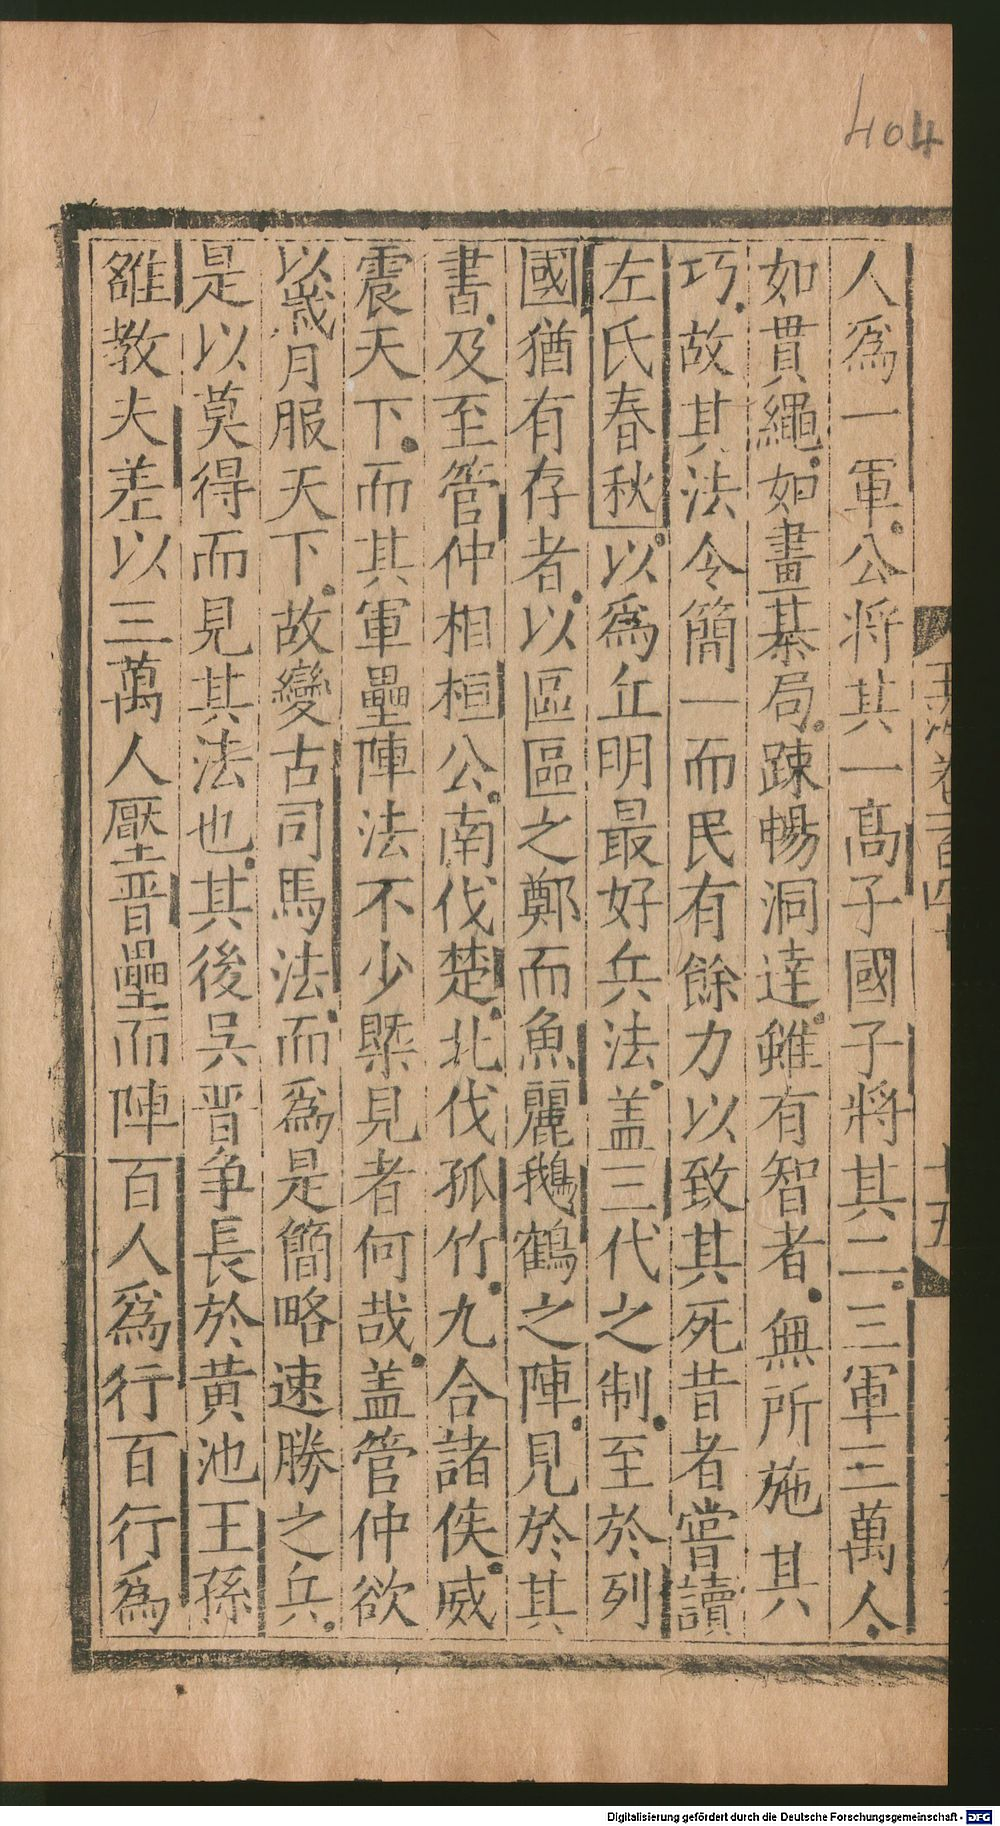 404
人爲一軍公將其一髙子國子將其二三軍三萬人
如貫繩如畫棊局踈暢洞達雖有智者無所施其
巧故其法令簡一而民有餘力以致其死昔者嘗讀
左氏春秋以爲丘明最好兵法盖三代之制至於列
國猶有存者以區區之鄭而魚麗鵝鶴之陣見於其
書及至管仲相桓公南伐楚北伐孤竹九合諸侯威
震天下而其軍壘陣法不少槩見者何哉盖管仲欲
以歲月服天下故變古司馬法而爲是簡略速勝之兵
是以莫得而見其法也其後吳晋争長於黄池王孫
雒教夫差以三萬人壓晋壘而陣百人爲行百行爲
卷一百四十
十五
Digitalisierung gefördert durch die Deutsche Forschungsgemeinschaft - DFG